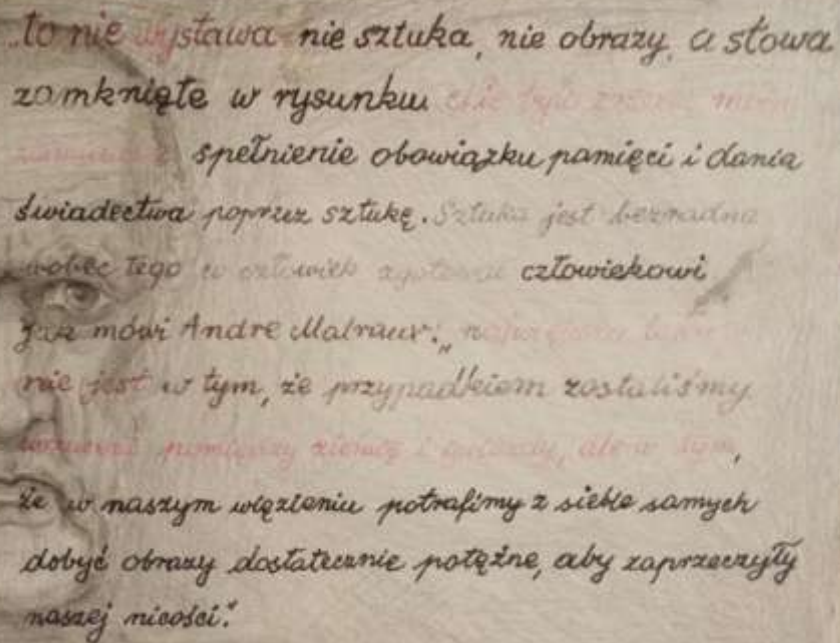 "to nie wystawa nie sztuka, nie obrazy, a słowa
zamknięte w rysunku
spełnienie obowiązku pamięci i dania
świadectwa poprzez sztukę. Sztuka jest bezradna
wobec tego co człowiek człowiekowi
jak mówi Andre Malraux: „
nie jest w tym, że przypadkiem zostaliśmy
pomiędzy ziemię i gwiazdy, ale w tym,
że w naszym więzieniu potrafimy z siebie samych
dobyć obrazy dostatecznie potężne, aby zaprzeczyły
naszej nicości."